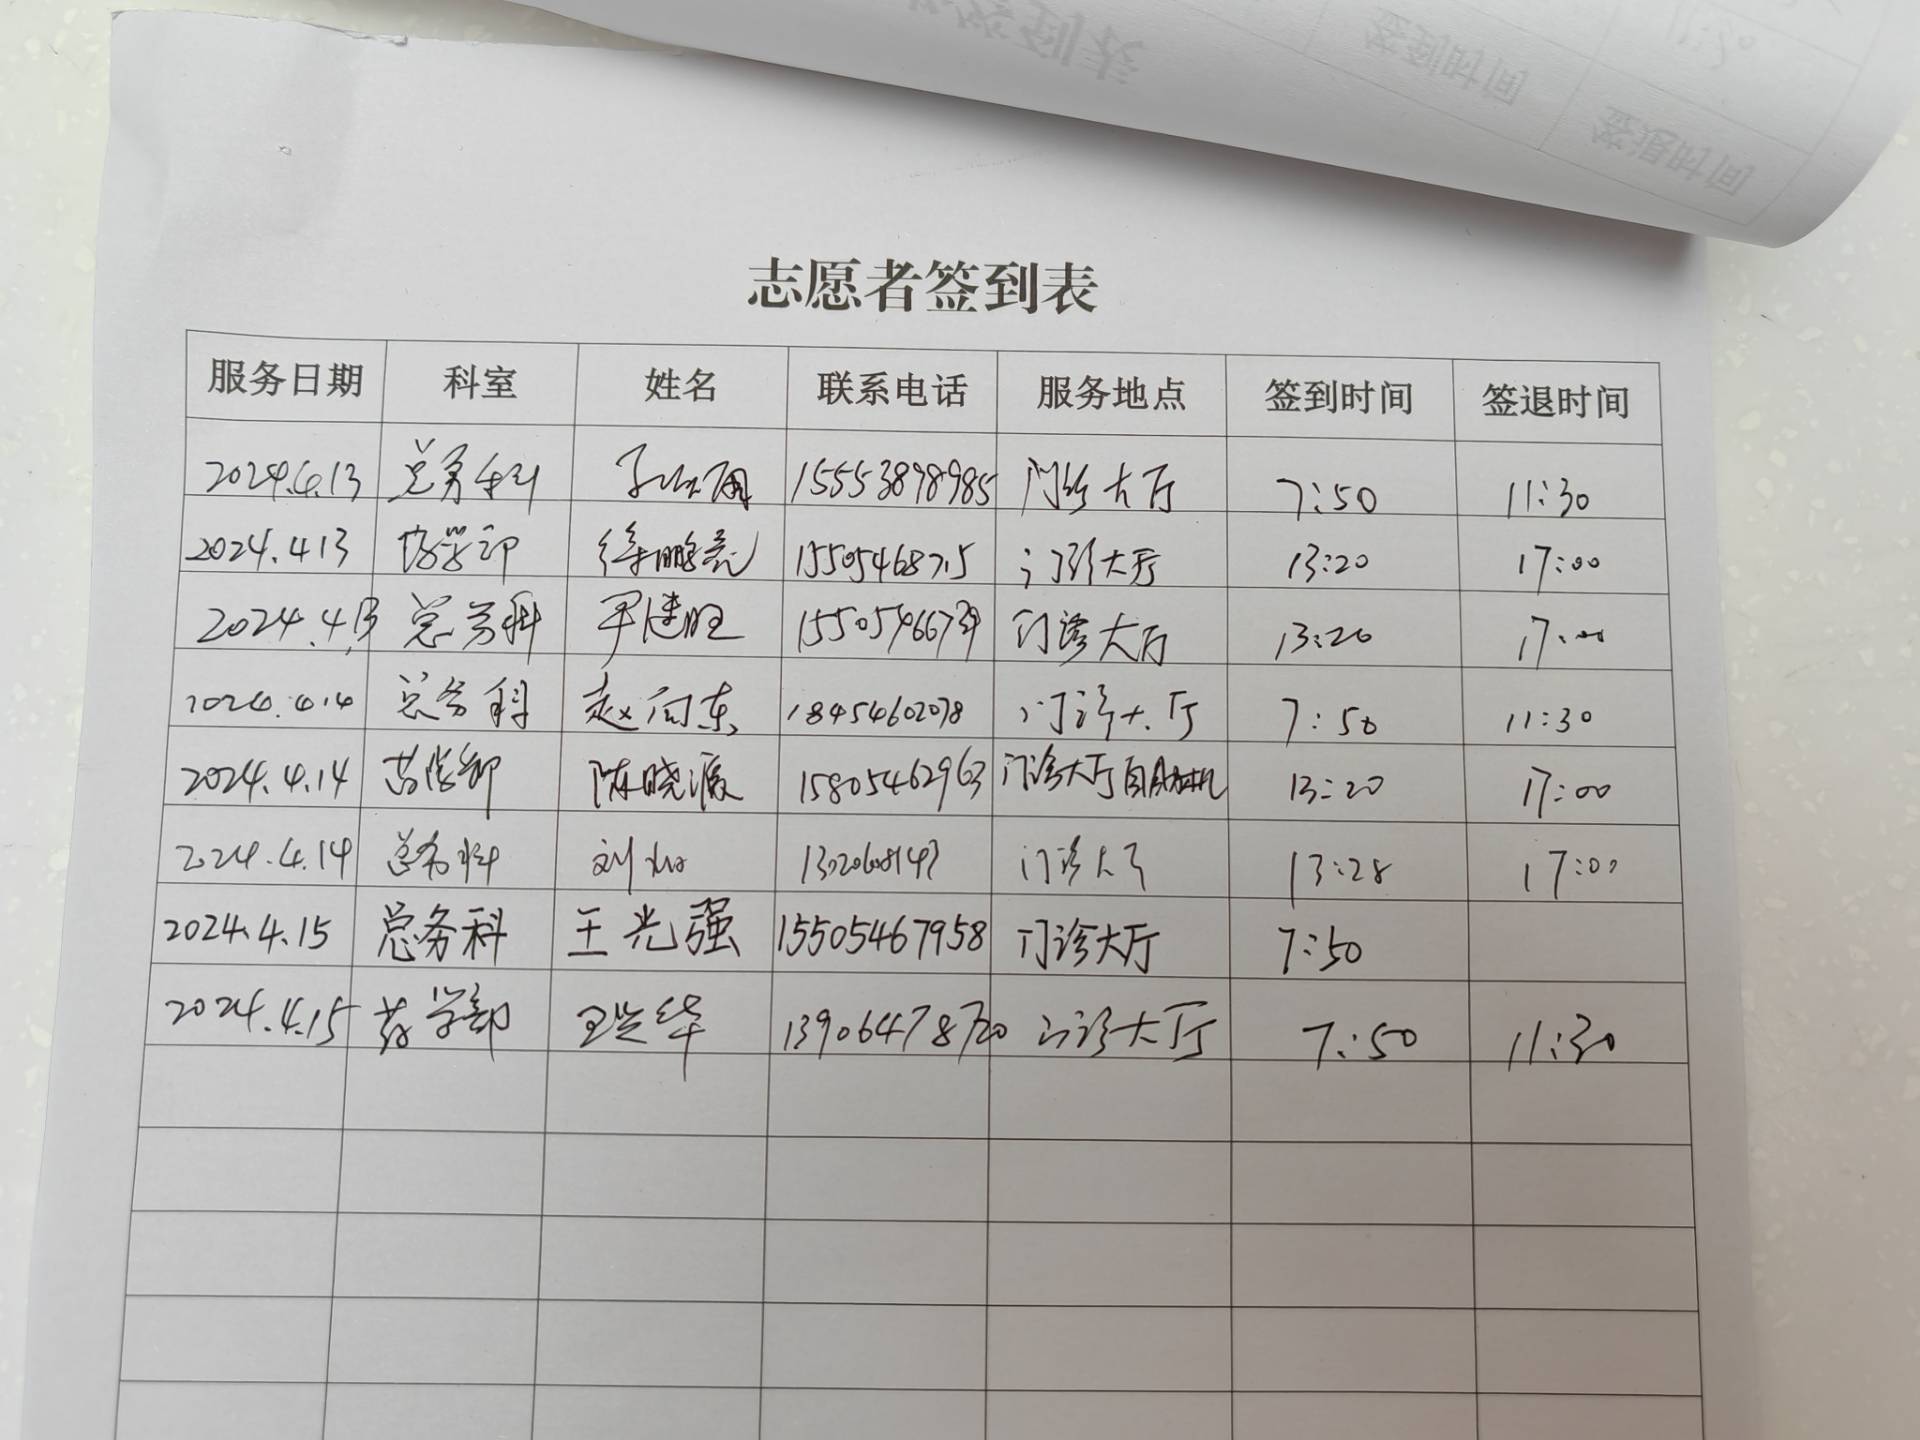 志愿者签到表
服务日期 科室 姓名 联系电话 服务地点 签到时间 签退时间
2024.4.13 总务科 15553898985 门诊大厅 7:50 11:30
2024.4.13 药学部 徐鹏亮 门诊大厅 13:20 17:00
2024.4.13 总务科 尹建旺 门诊大厅 13:20 17:00
2024.4.14 总务科 赵向东 18454602078 门诊大厅 7:50 11:30
2024.4.14 药学部 陈晓源 15805462963 门诊大厅自助机 13:20 17:00
2024.4.14 总务科 刘 门诊大厅 13:28 17:00
2024.4.15 总务科 王光强 15505467958 门诊大厅 7:50
2024.4.15 药学部 华 13906478720 门诊大厅 7:50 11:30